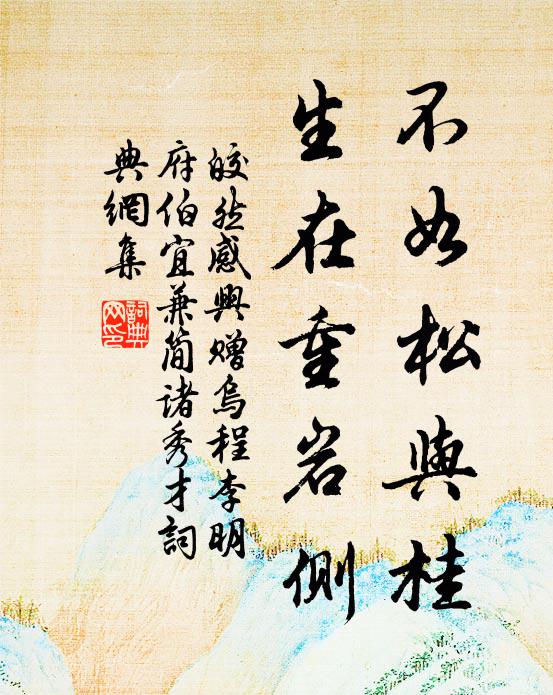 不如松與桂
生在重岩側
皎然感興贈烏程李明
府伯宜兼簡諸秀才詞
典網集
詞典
网印